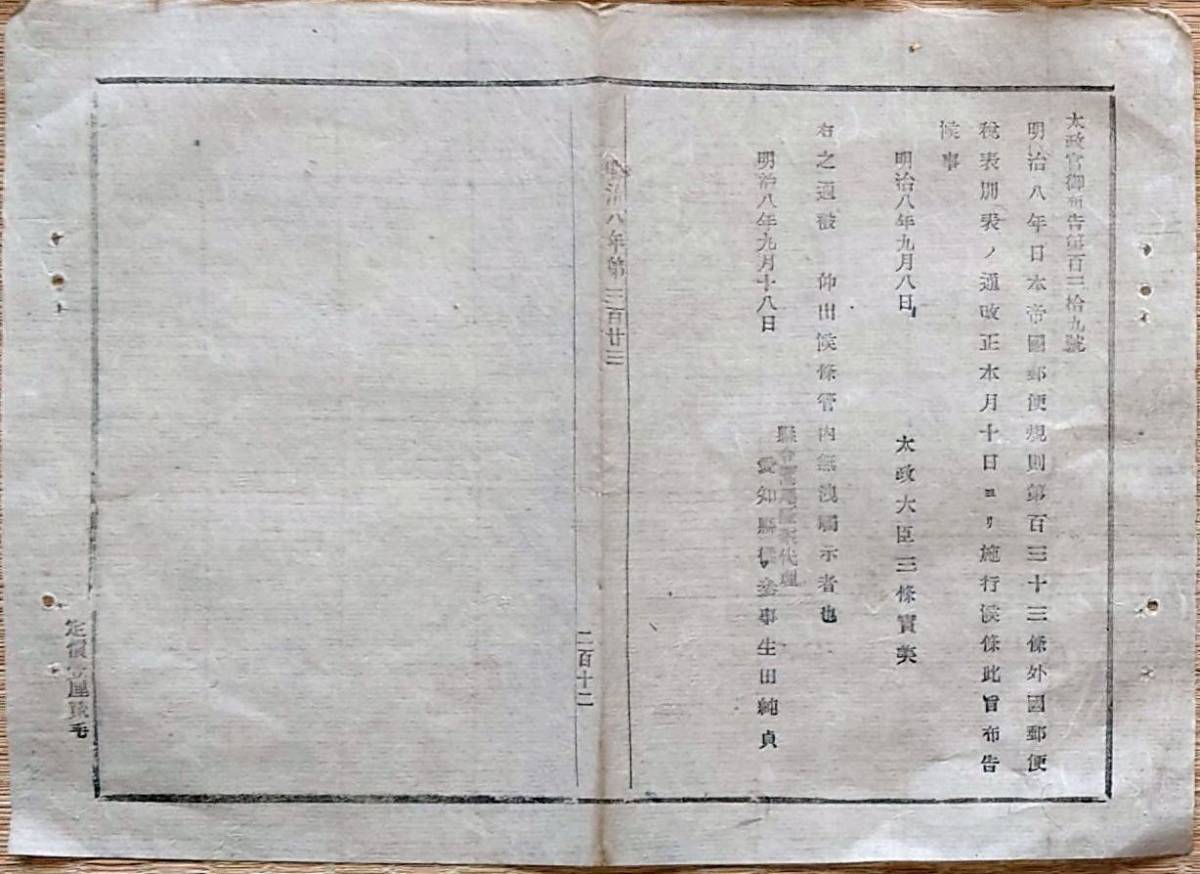 太政官御布告第百三拾九號
明治八年日本帝國郵便規則第百三十三條外國郵便
稅表別表ノ通改正本月十日ヨリ施行候條此旨布告
候事
明治八年九月八日 太政大臣三條實美
右之通被 仰出候條管內無洩觸示者也
縣令鷲尾隆聚代理
明治八年九月十八日 愛知縣權參事生田純貞
明治八年第三百廿三
二百十二
定價 厘 毛